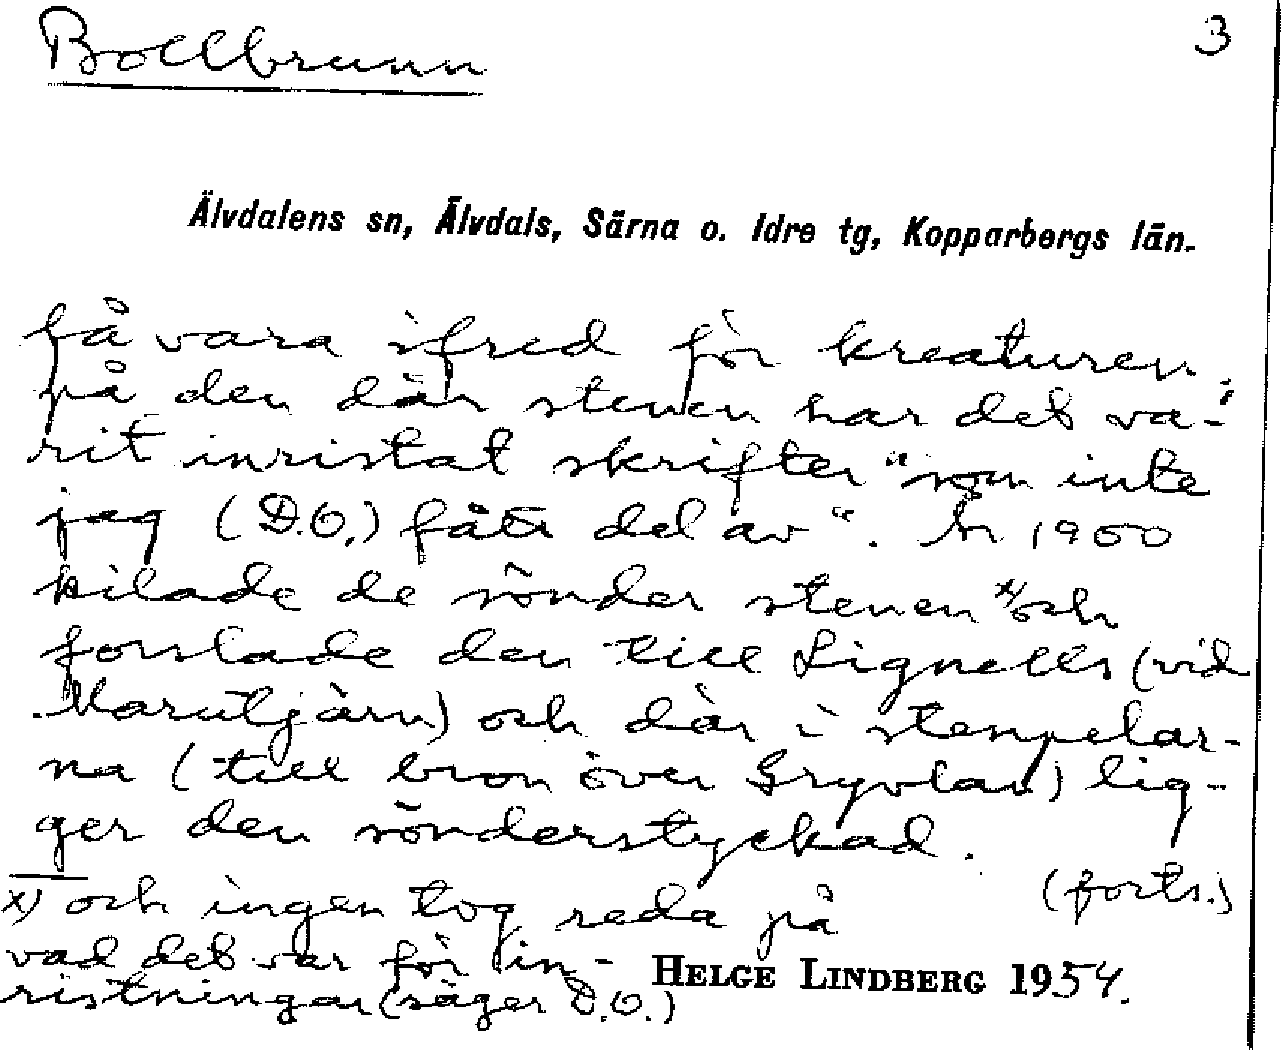 Bollbrunn
3
Älvdalens sn, Älvdals, Särna o. Idre tg, Kopparbergs län.
få vara ifred för kreaturen;
på den där stenen har det va-
rit inristat skrifter "som inte
jag (D.O.) fått del av". År 1900
kilade de sönder stenen x) och
forslade den till Lignells (vid
Marutjärn) och där i stenpelar-
na (till bron över Gryvlan) lig-
ger den sönderstyckad.
(forts.)
x) och ingen tog reda på
vad det var för in-
ristningar (säger D.O.)
HELGE LINDBERG 1954.